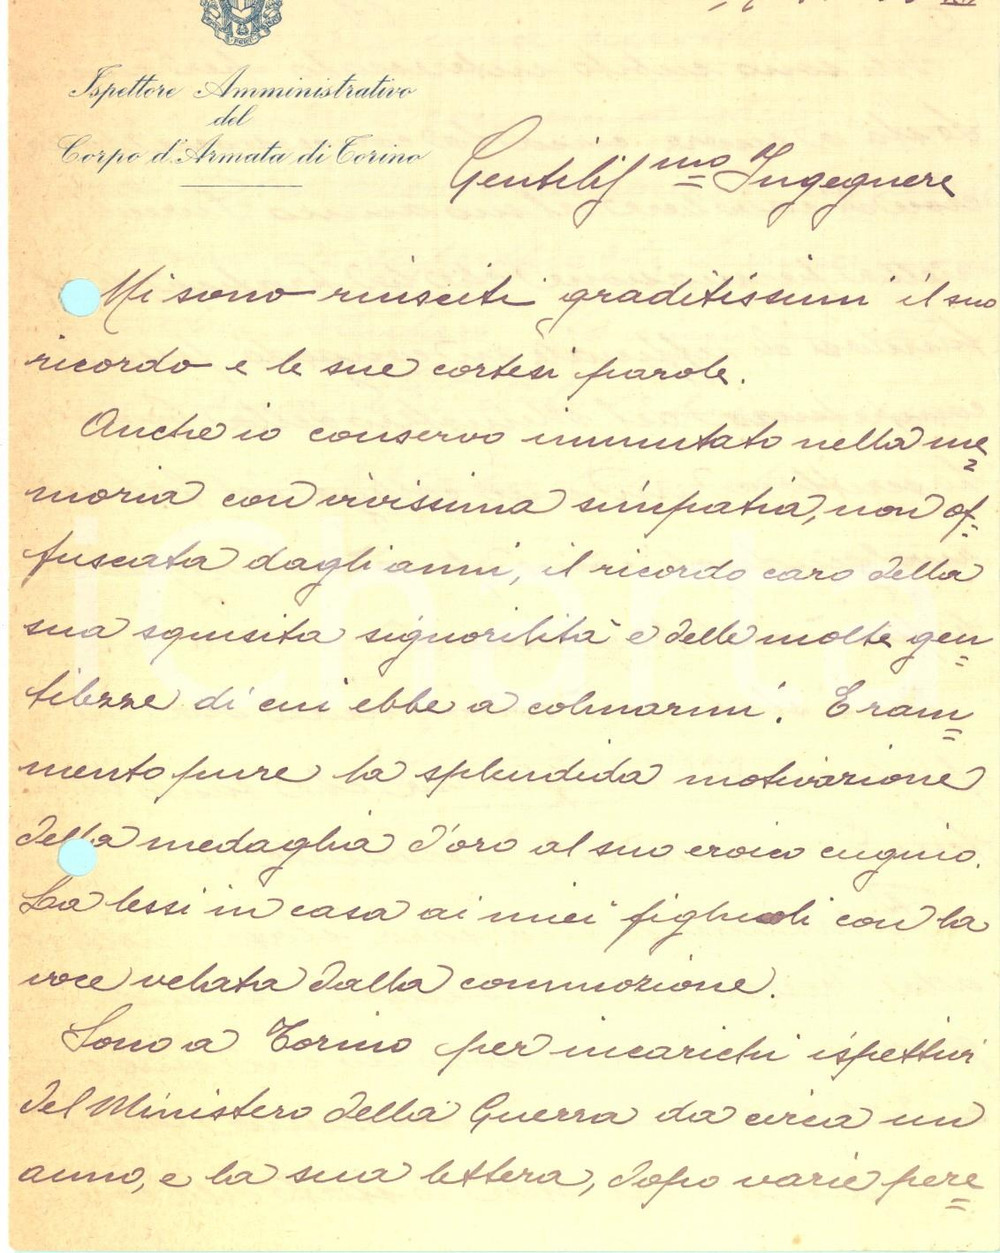 Ispettore Amministrativo
del
Corpo d'Armata di Torino
Gentiliss mo Ingegnere
Mi sono riusciti graditissimi il suo
ricordo e le sue cortesi parole.
Anche io conservo immutato nella me=
moria con vivissima simpatia, non of=
fuscata dagli anni, il ricordo caro della
sua squisita signorilità e delle molte gen=
tilezze di cui ebbe a colmarmi. E ram=
mento pure la splendida motivazione
della medaglia d'oro al suo eroico cugino.
La lessi in casa ai miei figliuoli con la
voce velata dalla commozione.
Sono a Torino per incarichi ispettivi
del Ministero della Guerra da circa un
anno, e la sua lettera, dopo varie pere=
iCharta